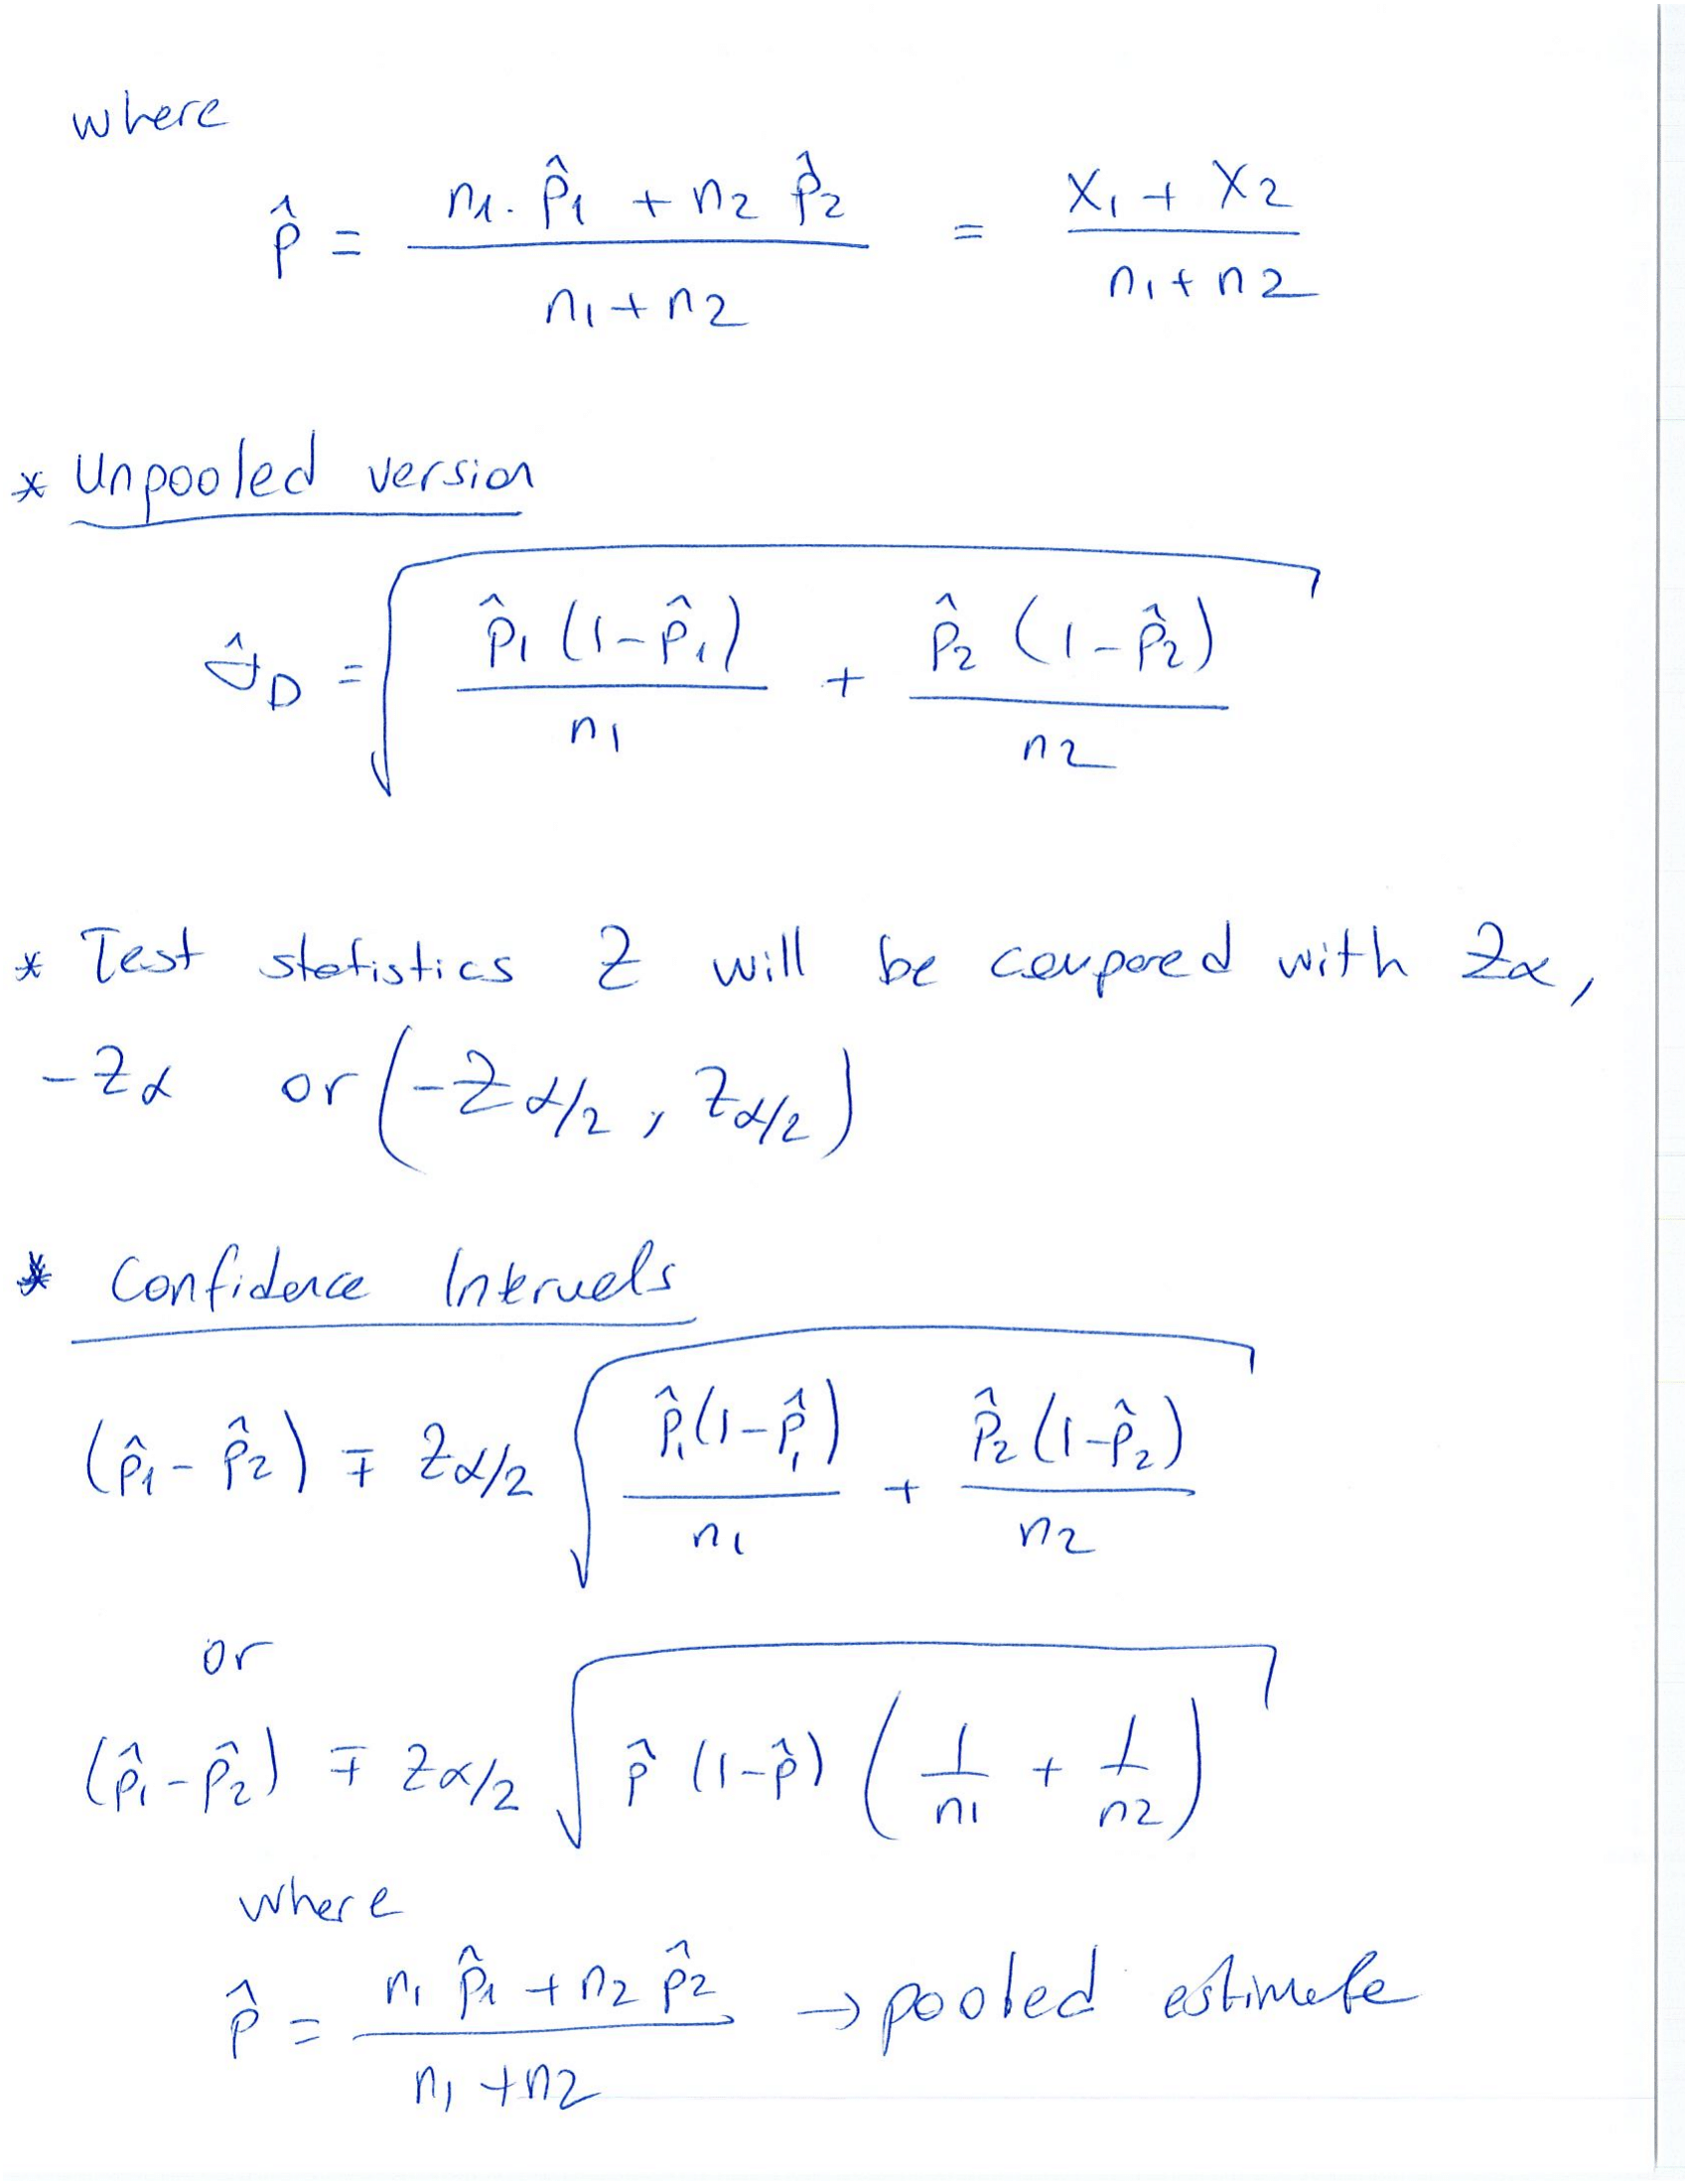 where
p̂ = (n1. p̂1 + n2 p̂2) / (n1 + n2) = (X1 + X2) / (n1 + n2)
* Unpooled version
σ̂D = √( p̂1 (1 - p̂1) / n1 + p̂2 (1 - p̂2) / n2 )
* Test statistics Z will be compared with Zα,
- Zα or (-Zα/2, Zα/2)
* Confidence Intervals
(p̂1 - p̂2) ∓ Zα/2 √( p̂1 (1 - p̂1) / n1 + p̂2 (1 - p̂2) / n2 )
or
(p̂1 - p̂2) ∓ Zα/2 √( p̂ (1 - p̂) ( 1/n1 + 1/n2 ) )
where
p̂ = (n1 p̂1 + n2 p̂2) / (n1 + n2) → pooled estimate